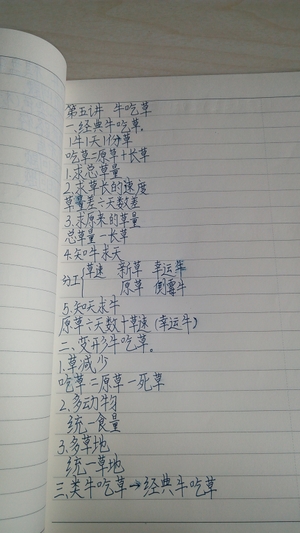 第五讲 牛吃草
一、经典牛吃草。
1牛1天1份草
吃草=原草+长草
1.求总草量
2.求草长的速度
草量差÷天数差
3.求原来的草量
总草量-长草
4.知牛求天
分工{草速 新草 幸运牛
原草 倒霉牛
5.知天求牛
原草÷天数+草速(幸运牛)
二、变形牛吃草。
1.草减少
吃草=原草-死草
2.多动物
统一食量
3.多草地
统一草地
三、类牛吃草→经典牛吃草